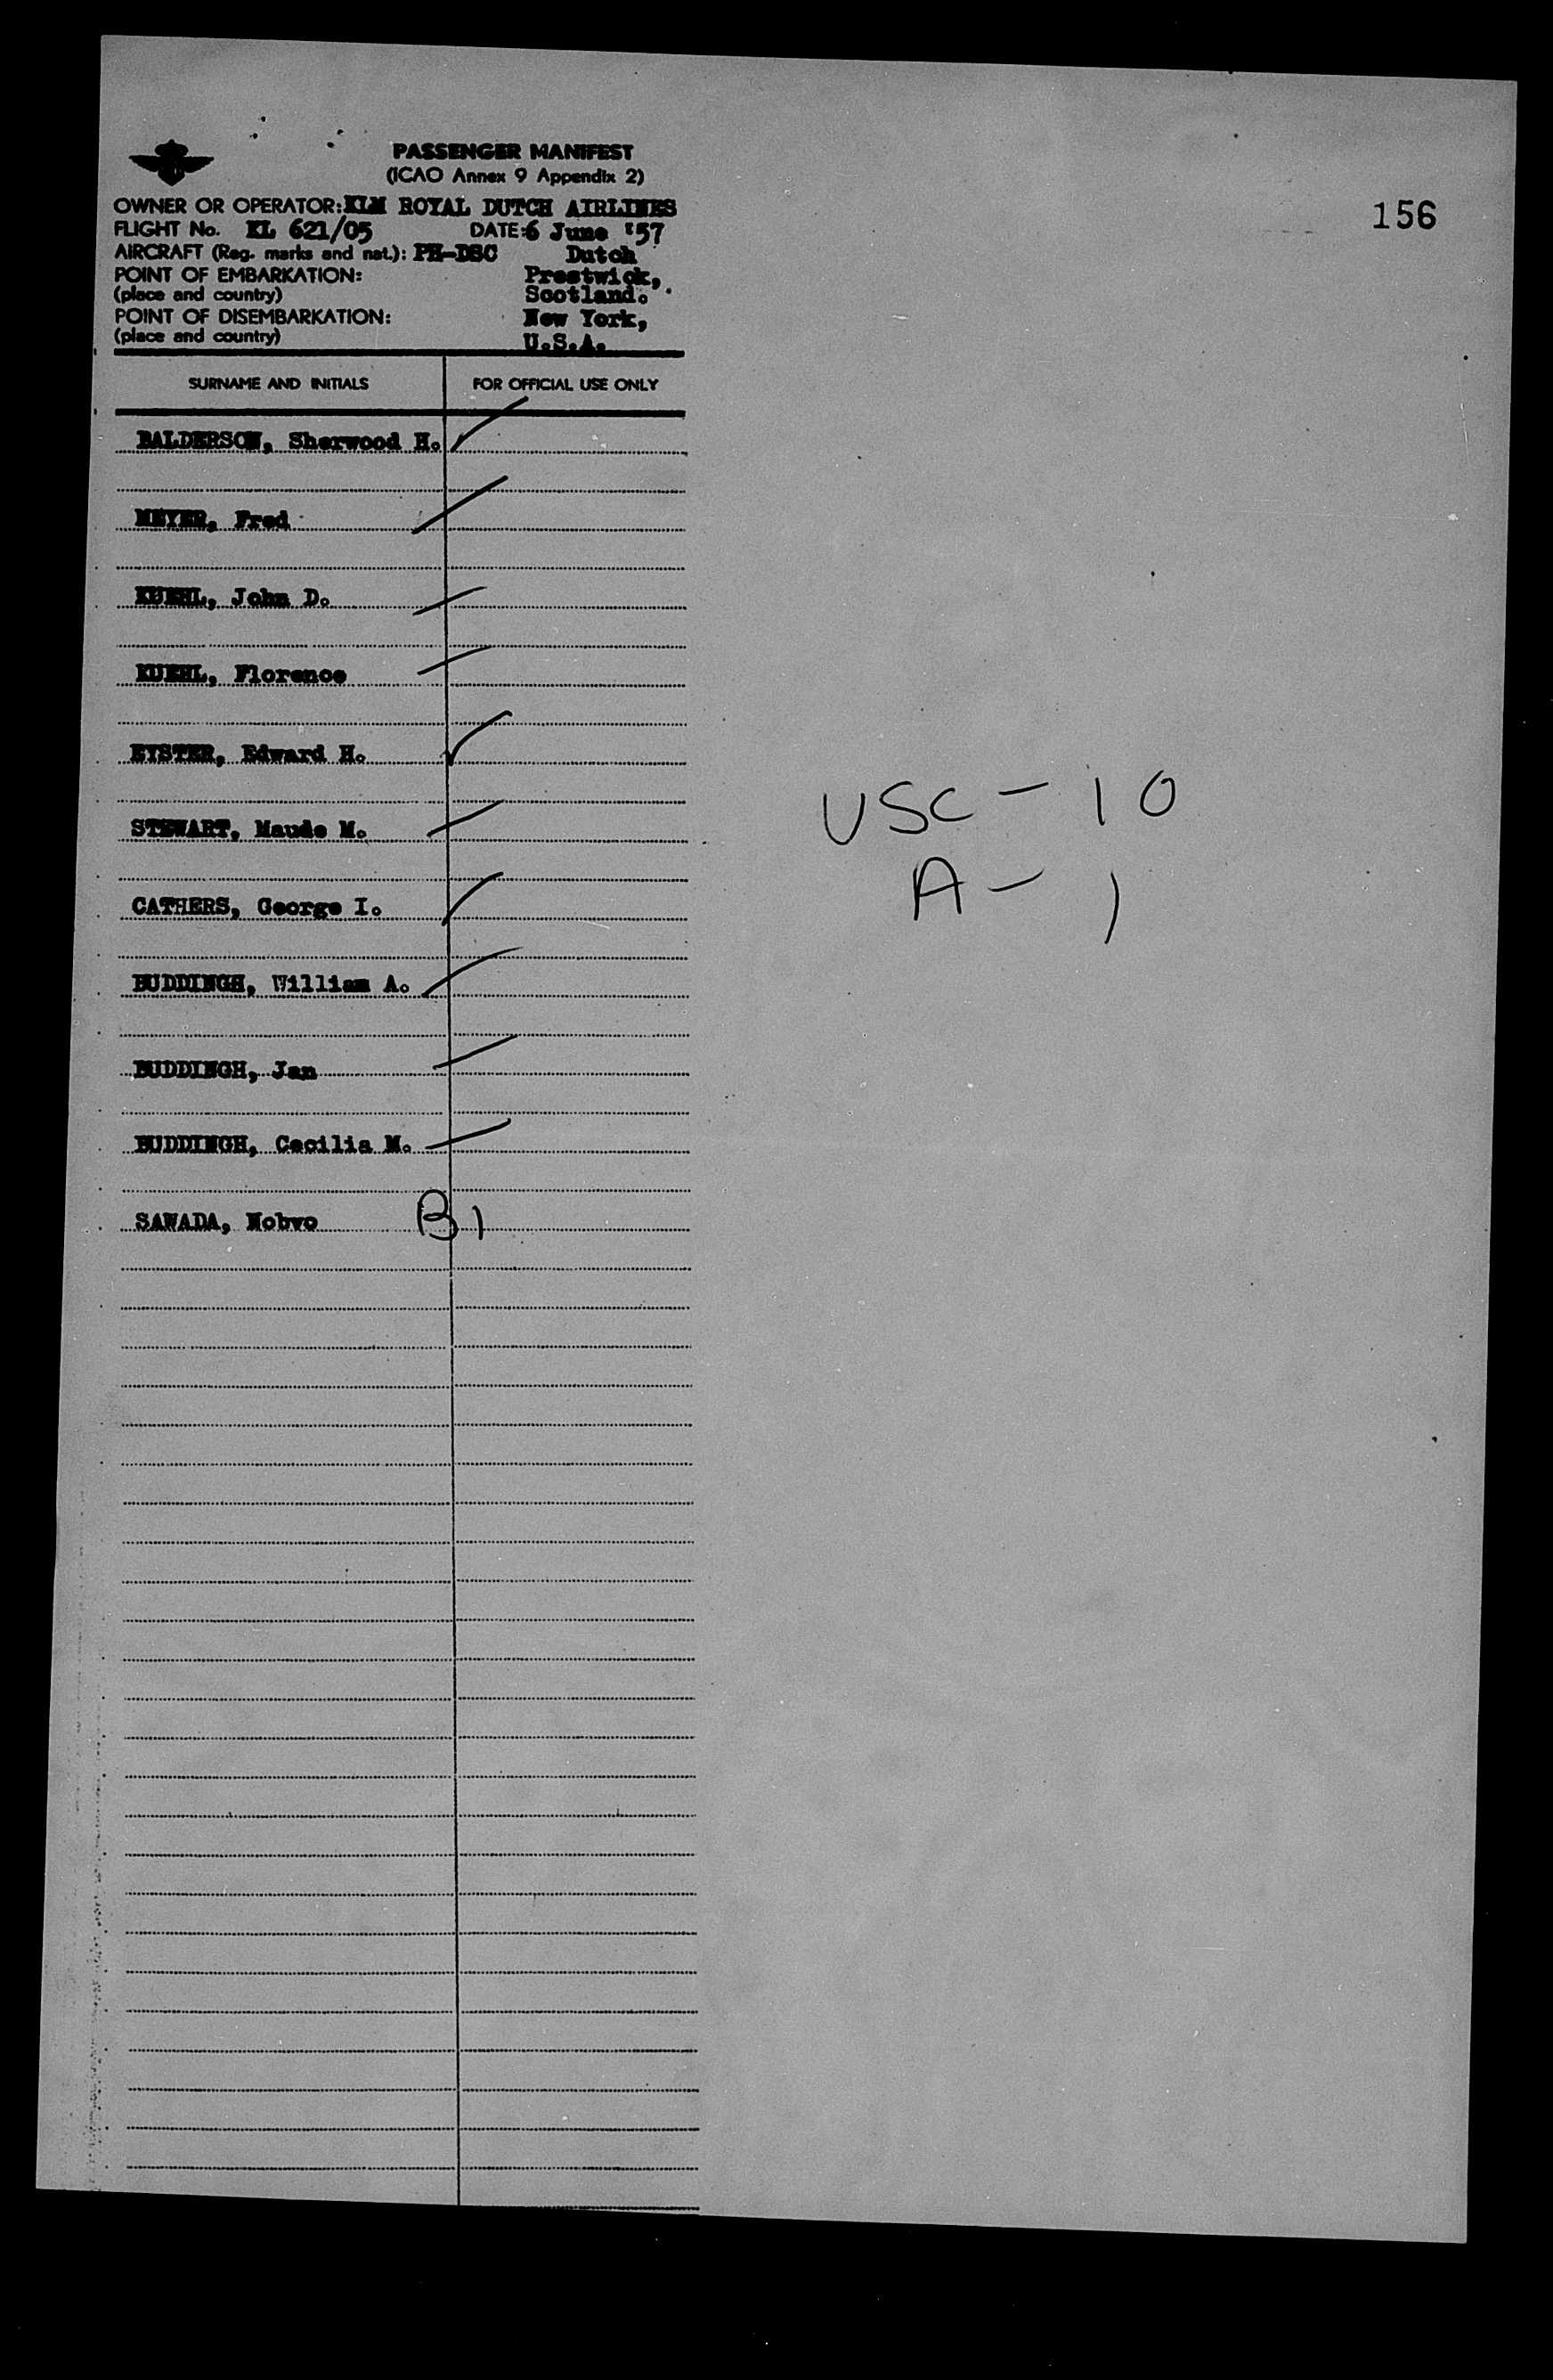 PASSENGER MANIFEST
(ICAO Annex 9 Appendix 2)
156
OWNER OR OPERATOR: KLM ROYAL DUTCH AIRLINES
FLIGHT No. KL 621/05 DATE: 6 June '57
AIRCRAFT (Reg. marks and nat.): PH-DSC Dutch
POINT OF EMBARKATION: Prestwick,
(place and country) Scotland.
POINT OF DISEMBARKATION: New York,
(place and country) U.S.A.
SURNAME AND INITIALS FOR OFFICIAL USE ONLY
BALDERSON, Sherwood H.
MEYER, Fred
KUEHL, John D.
KUEHL, Florence
EYSTER, Edward H.
USC - 10
STEWART, Maude M.
A - 1
CATHERS, George I.
BUDDINGH, William A.
BUDDINGH, Jan
BUDDINGH, Cecilia M.
SAWADA, Nobvo B1